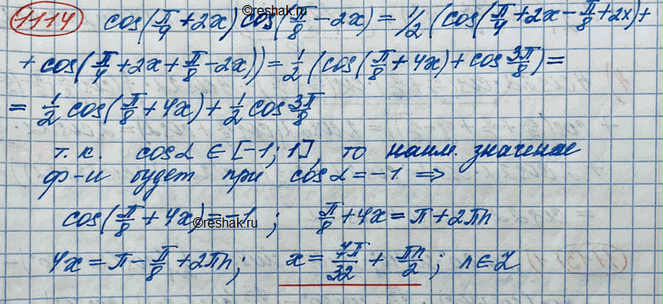 1114 cos(π/4 + 2x) cos(π/8 − 2x) = 1/2 (cos(π/4 + 2x − π/8 + 2x) +
+ cos(π/4 + 2x + π/8 − 2x)) = 1/2 (cos(π/8 + 4x) + cos 3π/8) =
= 1/2 cos(π/8 + 4x) + 1/2 cos 3π/8
т.к. cos α ∈ [−1; 1], то наим. значение
ф-и будет при cos α = −1 ⇒
©reshak.ru
cos(π/8 + 4x) = −1 ; π/8 + 4x = π + 2πn
©reshak.ru
4x = π − π/8 + 2πn; x = 7π/32 + πn/2 ; n ∈ Z